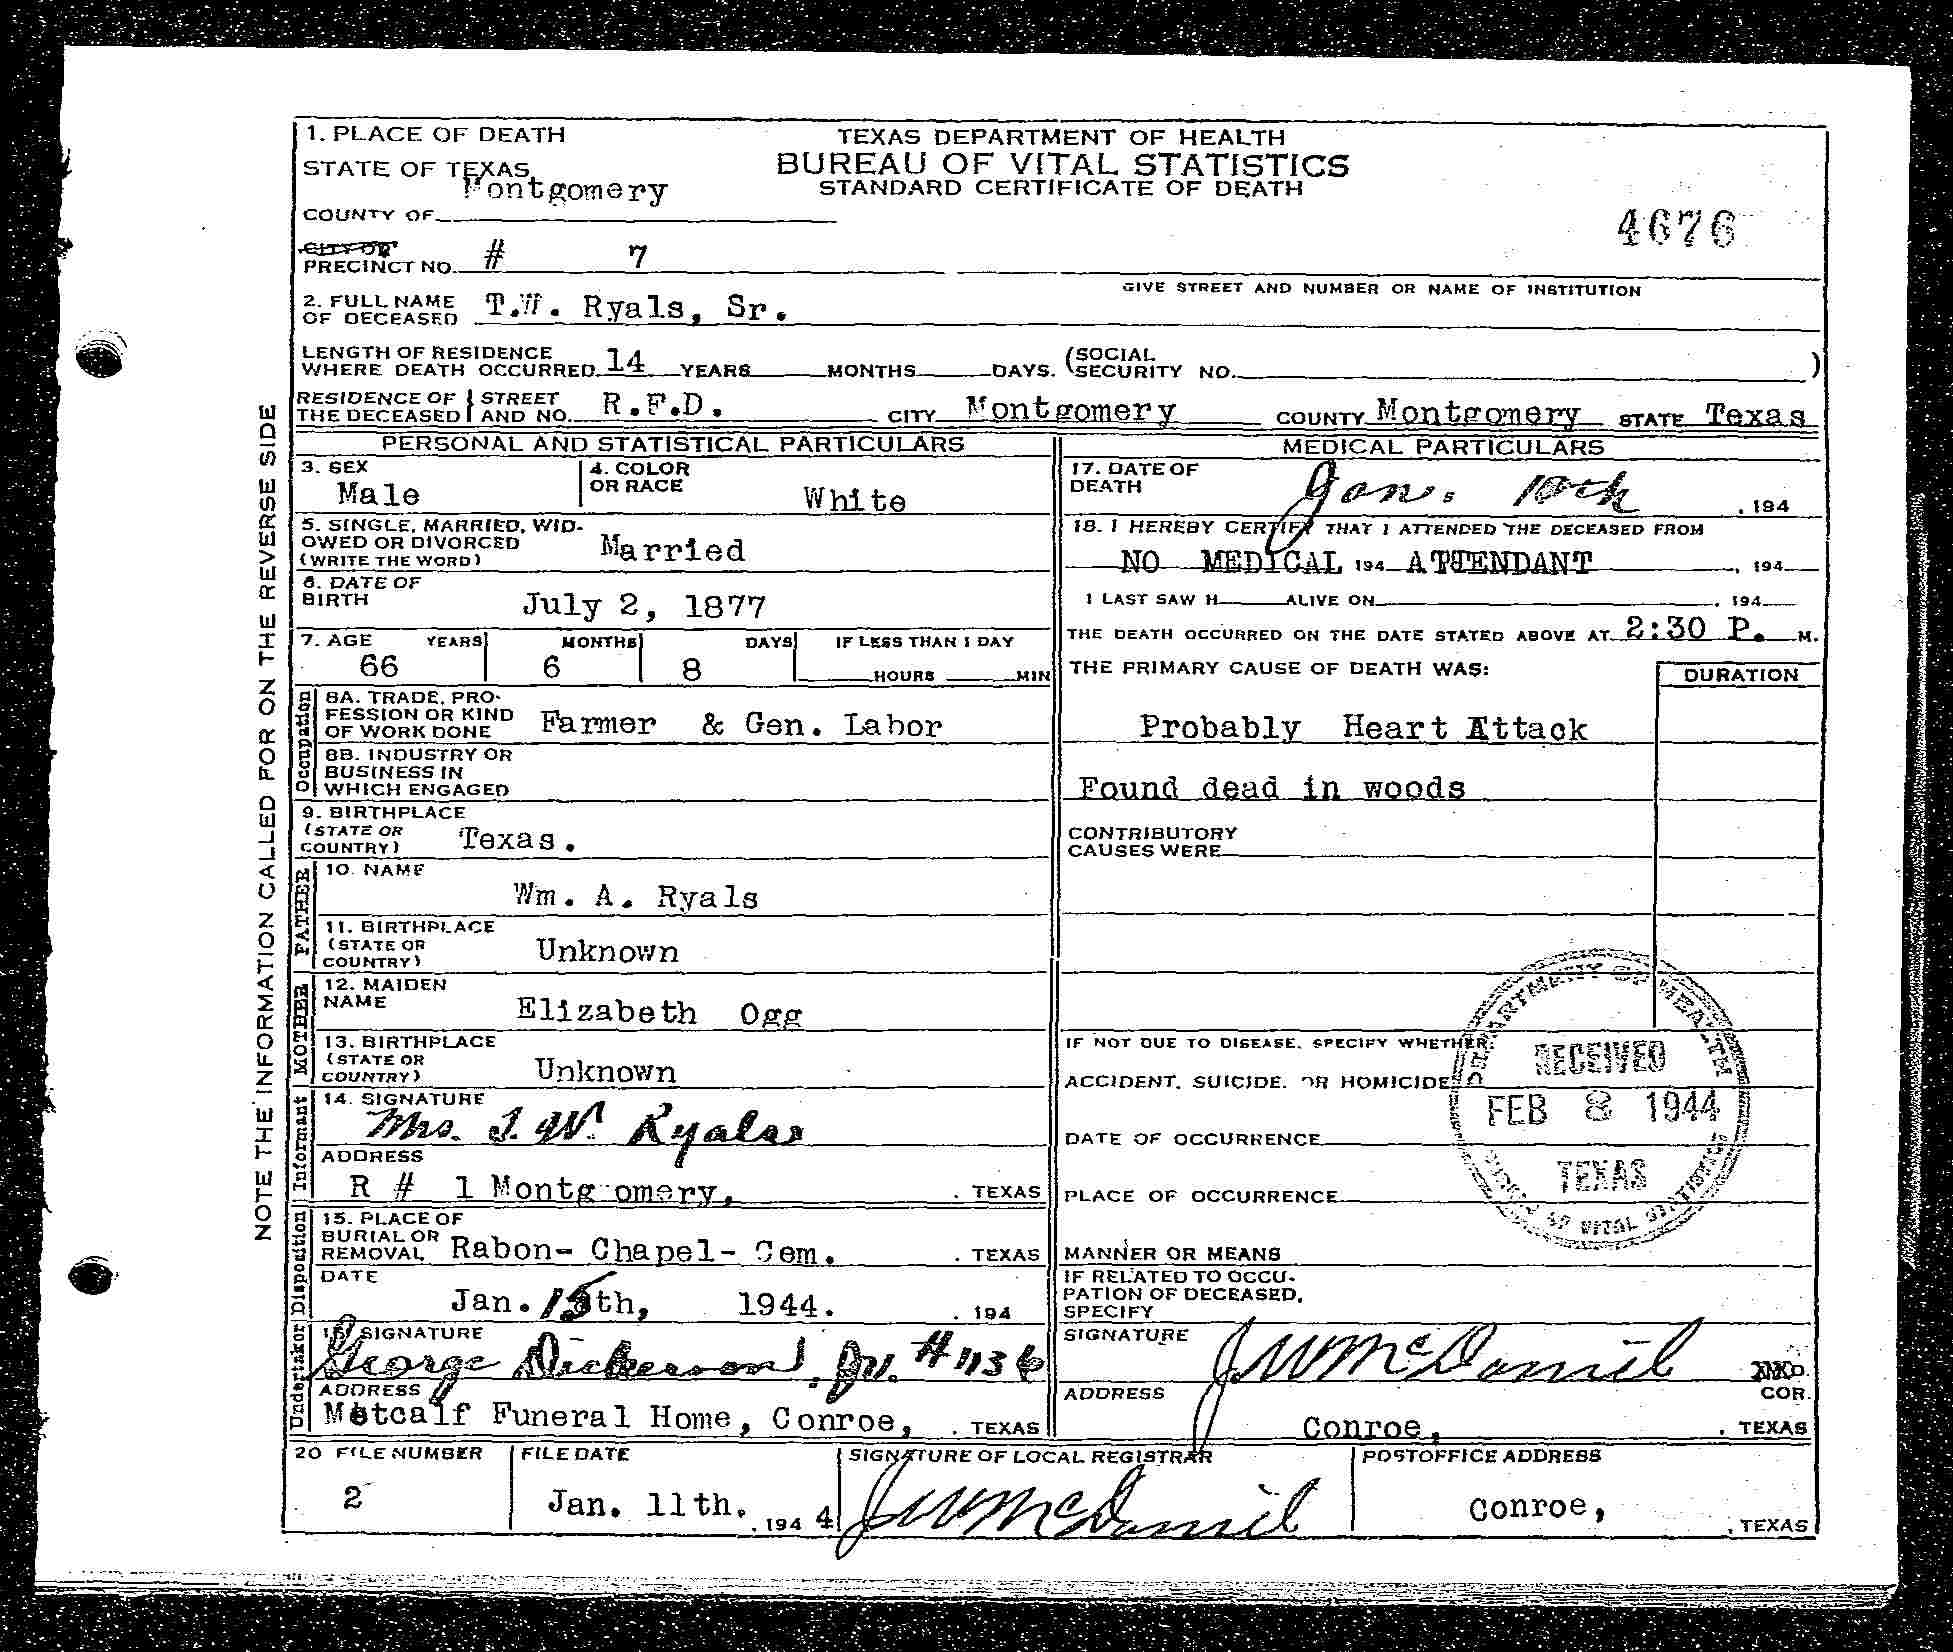 NOTE THE INFORMATION CALLED FOR ON THE REVERSE SIDE
TEXAS DEPARTMENT OF HEALTH
BUREAU OF VITAL STATISTICS
STANDARD CERTIFICATE OF DEATH
4676
1. PLACE OF DEATH
STATE OF TEXAS
COUNTY OF Montgomery
CITY OR
PRECINCT NO. # 7
GIVE STREET AND NUMBER OR NAME OF INSTITUTION
2. FULL NAME
OF DECEASED T.W. Ryals, Sr.
LENGTH OF RESIDENCE
WHERE DEATH OCCURRED 14 YEARS MONTHS DAYS. (SOCIAL
SECURITY NO. )
RESIDENCE OF
THE DECEASED STREET
AND NO. R.F.D. CITY Montgomery COUNTY Montgomery STATE Texas
PERSONAL AND STATISTICAL PARTICULARS
3. SEX
Male
4. COLOR
OR RACE
White
5. SINGLE, MARRIED, WID-
OWED OR DIVORCED
(WRITE THE WORD) Married
6. DATE OF
BIRTH July 2, 1877
7. AGE YEARS MONTHS DAYS IF LESS THAN 1 DAY
66 6 8 HOURS MIN
Occupation
8A. TRADE, PRO-
FESSION OR KIND
OF WORK DONE Farmer & Gen. Labor
8B. INDUSTRY OR
BUSINESS IN
WHICH ENGAGED
9. BIRTHPLACE
(STATE OR
COUNTRY) Texas.
FATHER
10. NAME
Wm. A. Ryals
11. BIRTHPLACE
(STATE OR
COUNTRY) Unknown
MOTHER
12. MAIDEN
NAME Elizabeth Ogg
13. BIRTHPLACE
(STATE OR
COUNTRY) Unknown
Informant
14. SIGNATURE
Mrs. T. W. Ryals
ADDRESS
R # 1 Montgomery, . TEXAS
Disposition
15. PLACE OF
BURIAL OR
REMOVAL Rabon- Chapel- Cem. . TEXAS
DATE
Jan. 15th, 1944. . 194
Undertaker
16. SIGNATURE
George Dickerson, Jr. # 1136
ADDRESS
Metcalf Funeral Home, Conroe, . TEXAS
MEDICAL PARTICULARS
17. DATE OF
DEATH Jan. 10th , 194
18. I HEREBY CERTIFY THAT I ATTENDED THE DECEASED FROM
NO MEDICAL 194 ATTENDANT , 194
I LAST SAW H ALIVE ON , 194
THE DEATH OCCURRED ON THE DATE STATED ABOVE AT 2:30 P. M.
THE PRIMARY CAUSE OF DEATH WAS:
DURATION
Probably Heart Attack
Found dead in woods
CONTRIBUTORY
CAUSES WERE
IF NOT DUE TO DISEASE, SPECIFY WHETHER:
ACCIDENT, SUICIDE, OR HOMICIDE
DATE OF OCCURRENCE
PLACE OF OCCURRENCE
MANNER OR MEANS
IF RELATED TO OCCU-
PATION OF DECEASED,
SPECIFY
DEPARTMENT OF HEALTH
RECEIVED
FEB 8 1944
TEXAS
BUREAU OF VITAL STATISTICS
SIGNATURE J W McDaniel
COR.
ADDRESS
Conroe, . TEXAS
20 FILE NUMBER
2
FILE DATE
Jan. 11th. . 194 4
SIGNATURE OF LOCAL REGISTRAR
J W McDaniel
POSTOFFICE ADDRESS
Conroe,
, TEXAS